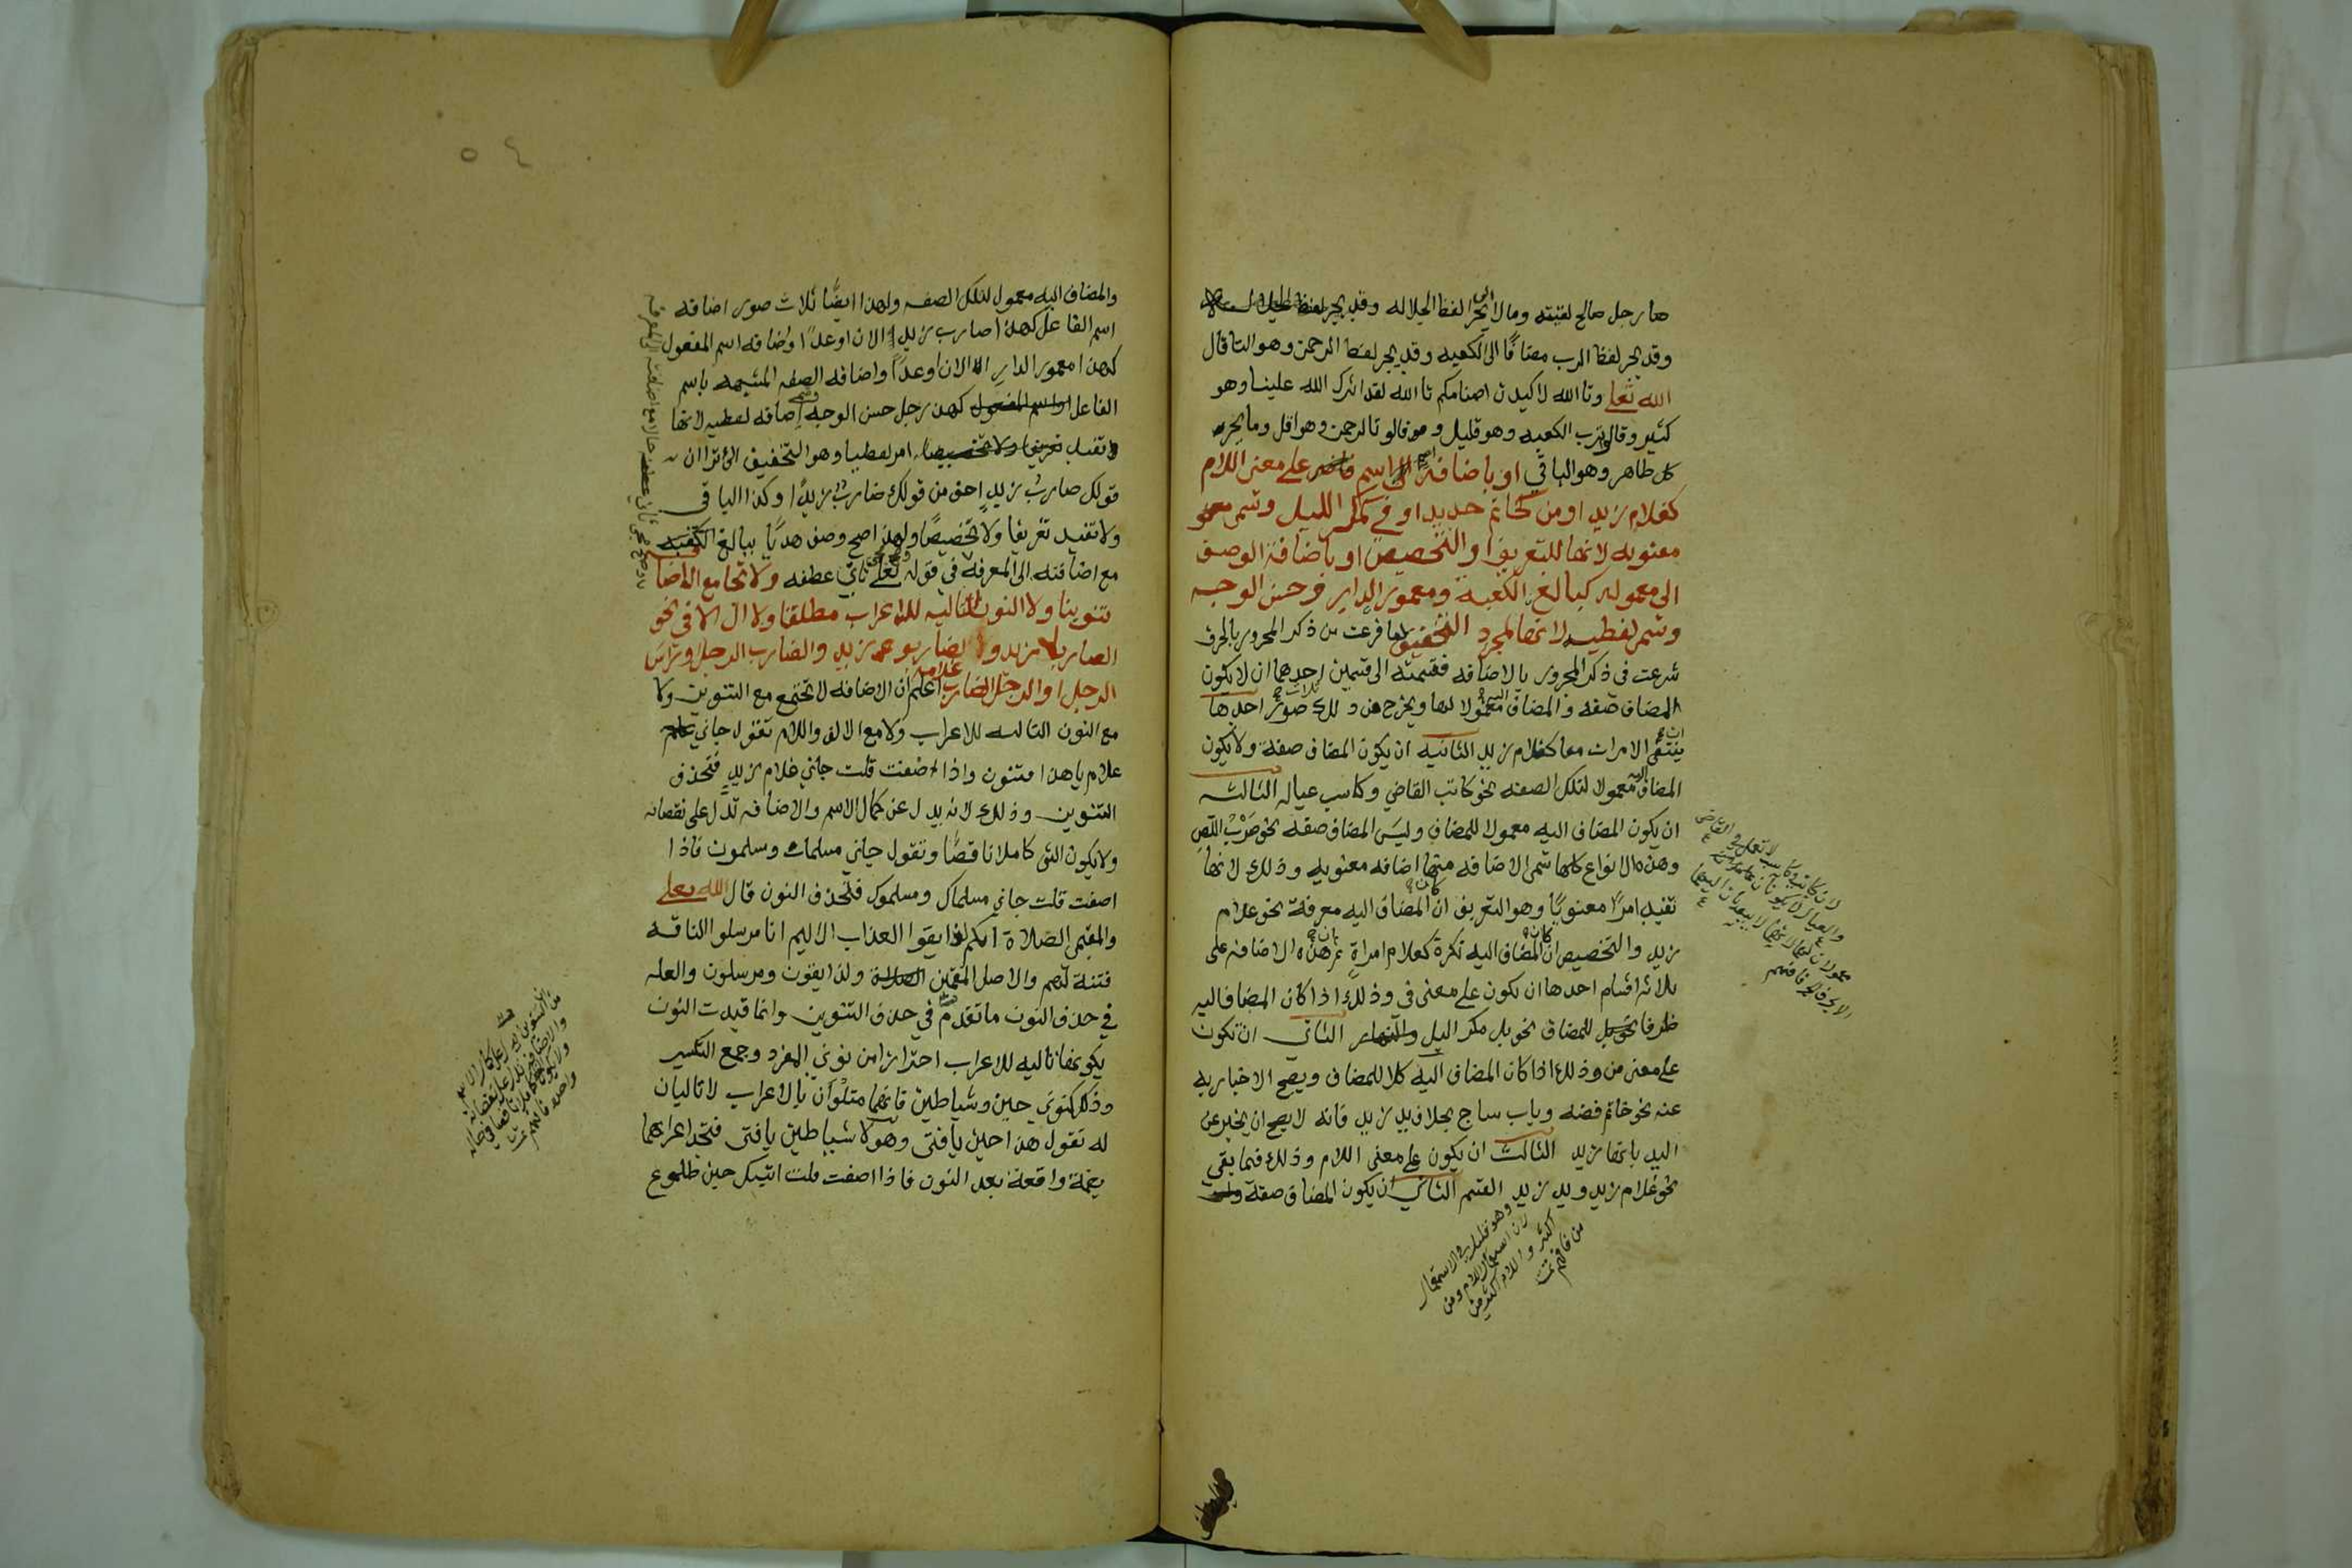 ها رجل صالح لقيته ومالا يجر الى لفظ الجلاله وقد يجر لفظ
وقد يجر لفظ الرب مضافًا الى الكعبه وقد يجر لفظ الرحمن وهو التا قال
الله تعلى وتا الله لاكيدن اصنامكم تا الله لقد اثرك الله علينا وهو
كثير وقالو ترب الكعبه وهو قليل وقالو تالرحمن وهو اقل وما يجر
كل ظاهر وهو الباقي او باضافة الى اسم على معنى اللام
كغلام زيد او من كخاتم حديد او في كمكر الليل وتسمى
معنويه لانها للتعريف او التخصيص او باضافة الوصف
الى معموله كبالغ الكعبة ومعمور الدار وحسن الوجه
وتسمى لفظيه لانها لمجرد التخفيف لما فرغت من ذكر المجرور بالحرف
شرعت في ذكر المجرور بالاضافه فقسمته الى قسمين احدهما ان لا يكون
المضاف صفه والمضاف اليه معمولا لها ويخرج من ذلك ثلاث صور احدها
ان ينتفى الامران معا كغلام زيد الثانيه ان يكون المضاف صفة ولا يكون
المضاف اليه معمولا لتلك الصفه نحو كاتب القاضي وكاسب عياله الثالثه
ان يكون المضاف اليه معمولا للمضاف وليس المضاف صفه نحو ضرْبُ اللّصِ
وهذه الانواع كلها تسمى الاضافه فيها اضافه معنويه وذلك لانها
تفيد امرًا معنويًا وهو التعريف ان كان المضاف اليه معرفة نحو غلام
زيد والتخصيص ان كان المضاف اليه نكرة كغلام امراةٍ ثم هذه الاضافه على
ثلاثه اقسام احدها ان تكون على معنى في وذلك اذا كان المضاف اليه
ظرفا للمضاف نحو بل مكر اليل والنهار الثاني ان تكون
على معنى من وذلك اذا كان المضاف اليه كلا للمضاف ويصح الاخبار به
عنه نحو خاتم فضه وباب ساج بخلاف يد زيد فانه لا يصح ان يخبر عن
اليد بانها زيد الثالث ان يكون على معنى اللام وذلك فيما بقي
نحو غلام زيد ويد زيد القسم الثاني ان يكون المضاف صفة
وهو قليل في الاستعمال
٥٤
والمضاف اليه معمول لتلك الصفه ولهذا ايضًا ثلاث صور اضافه
اسم الفاعل كهذا ضارب زيد الان او غدًا واضافه اسم المفعول
كهذا معمور الدار الان او غدًا واضافه الصفه المشبهه باسم
الفاعل كهذا رجل حسن الوجه وتسمى اضافه لفظيه لانها
تفيد امر لفظيا وهو التخفيف الا ترا ان
قولك ضاربُ زيدٍ اخف من قولك ضاربٌ زيدًا وكذا الباقي
ولا تفيد تعريفا ولا تخصيصًا ولهذا صح وصف هديًا ببالغ الكعبه
مع اضافته الى المعرفة في قوله تعلى ثاني عطفه ولا تجامع الاضا
تنوينا ولا النون التاليه للاعراب مطلقا ولا ال الا في نحو
الضاربا زيد والضاربو زيد والضارب الرجل وراس
الرجل او الرجل الضارب غلامه اعلم ان الاضافه لا تجتمع مع التنوين ولا
مع النون التاليه للاعراب ولا مع الالف واللام تقول جاني
غلام ياهذا فتنون واذا اضفت قلت جاني غلام زيدٍ فتحذف
التنوين وذلك لانه يدل عن كمال الاسم والاضافه تدل على نقصانه
ولا يكون الشي كاملا ناقصًا وتقول جاني مسلمان ومسلمون فاذا
اضفت قلت جاني مسلماك ومسلموك فتحذف النون قال الله تعلى
والمقيمي الصلاة انكم لذايقوا العذاب الاليم انا مرسلوا الناقه
فتنة لهم والاصل المقيمين ولذايقون ومرسلون والعله
في حذف النون ما تقدم في حذف التنوين وانما قيدت النون
بكونها تاليه للاعراب احترازا من نوني المفرد وجمع التكسير
وذلك كنوني حين وشياطين فانهما متلوان بالاعراب لا تاليان
له تقول هذا حين يافتى وهولا شياطين يافتى فتجد اعرابهما
بضمة واقعة بعد النون فاذا اضفت قلت اتيك حين طلوع